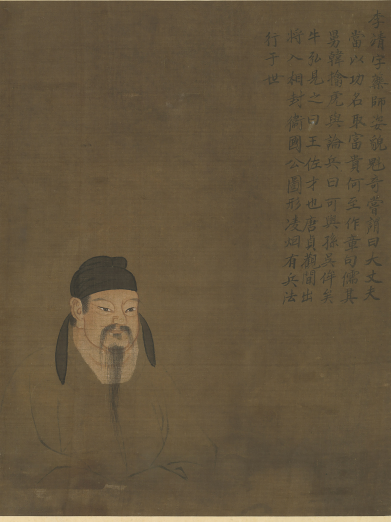 李靖字藥師姿貌魁奇嘗謂曰大丈夫
當以功名取富貴何至作章句儒其
舅韓擒虎與論兵曰可與孫吳俦矣
牛弘見之曰王佐才也唐貞觀間出
將入相封衛國公圖形凌烟有兵法
行于世